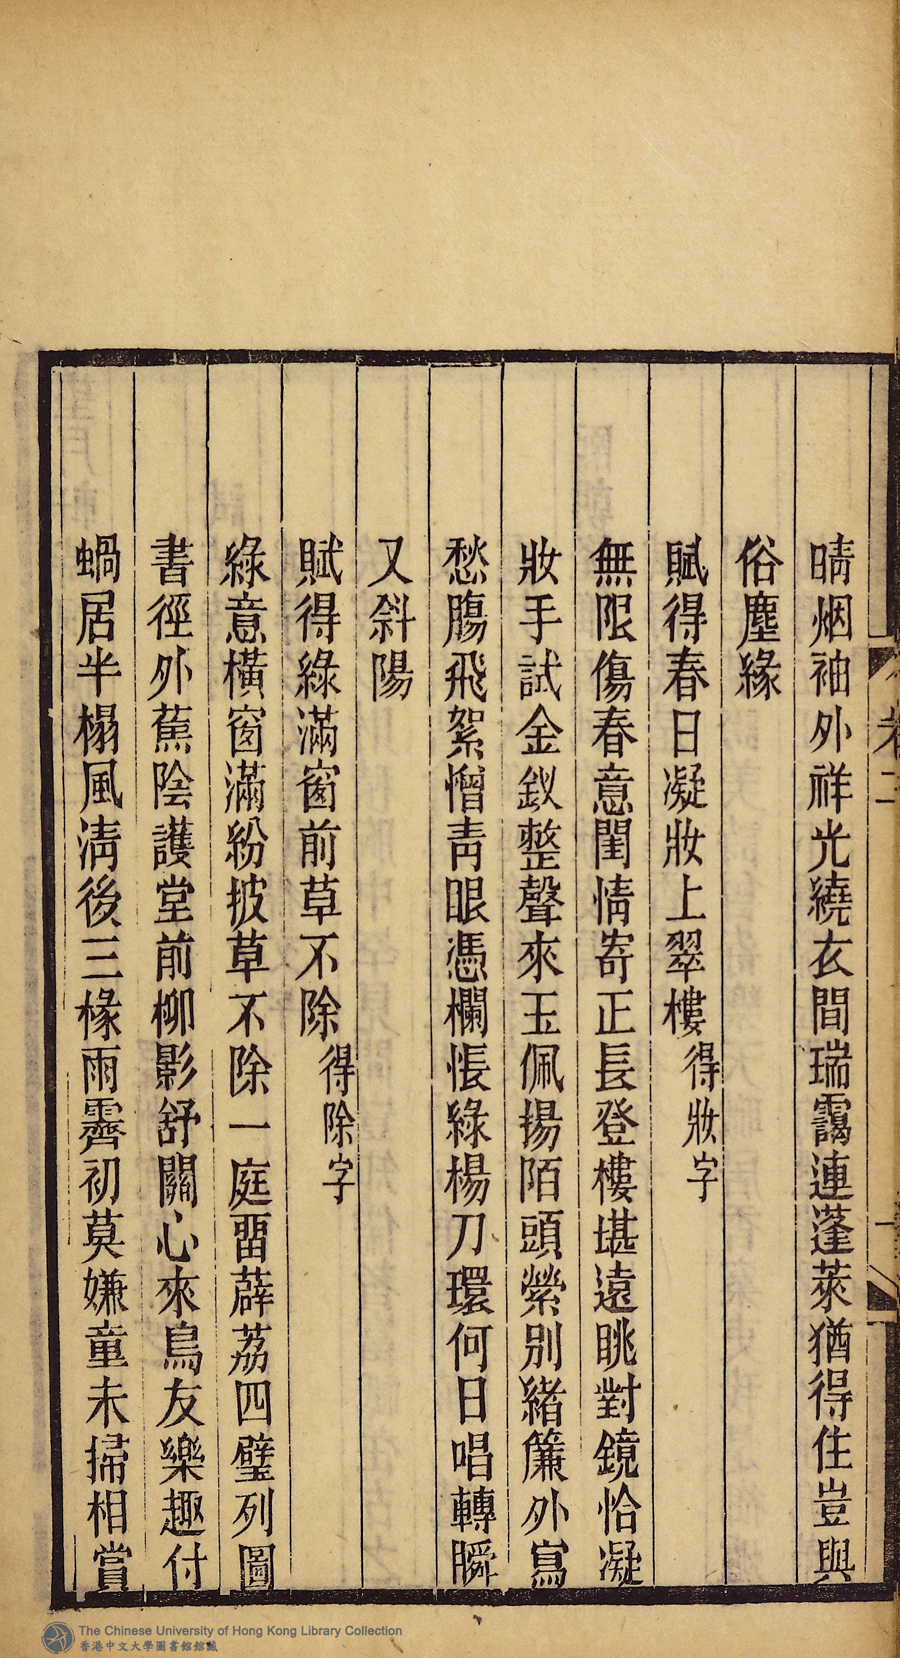 晴烟袖外祥光繞衣間瑞靄連蓬萊猶得住豈與
俗塵緣
賦得春日凝妝上翠樓得妝字
無限傷春意閨情寄正長登樓堪遠眺對鏡恰凝
妝手試金釵整聲來玉佩揚陌頭縈別緒簾外寫
愁腸飛絮憎靑眼憑欄悵綠楊刀環何日唱轉瞬
又斜陽
賦得綠滿窗前草不除得除字
綠意橫窗滿紛披草不除一庭畱薜荔四壁列圖
書徑外蕉陰護堂前柳影舒關心來鳥友樂趣付
蝸居半榻風淸後三椽雨霽初莫嫌童未掃相賞
卷二
The Chinese University of Hong Kong Library Collection
香港中文大學圖書館館藏